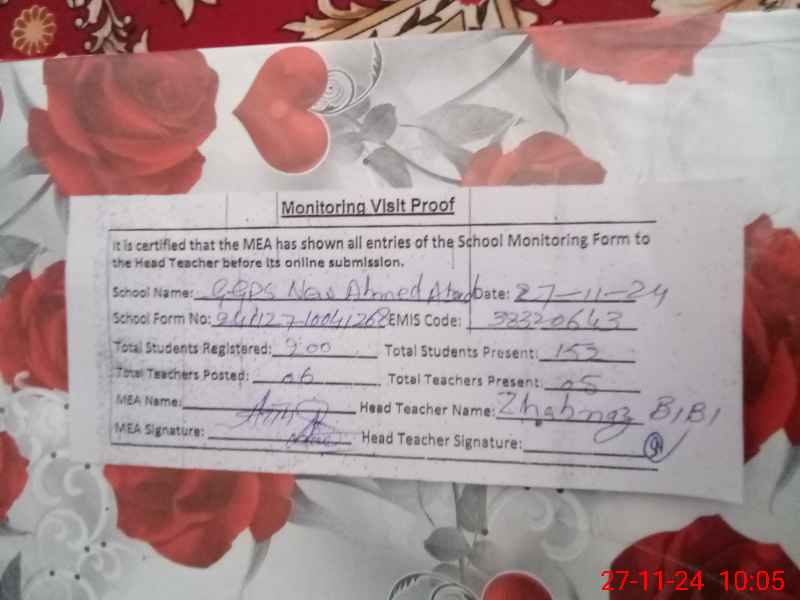 Monitoring Visit Proof
It is certified that the MEA has shown all entries of the School Monitoring Form to
the Head Teacher before its online submission.
School Name: GGPS Ahmed Date: 27-11-24
School Form No: EMIS Code: 38320643
Total Students Registered: 200 Total Students Present: 152
Total Teachers Posted: 06 Total Teachers Present: 05
MEA Name: Head Teacher Name: BIBI
MEA Signature: Head Teacher Signature:
27-11-24 10:05